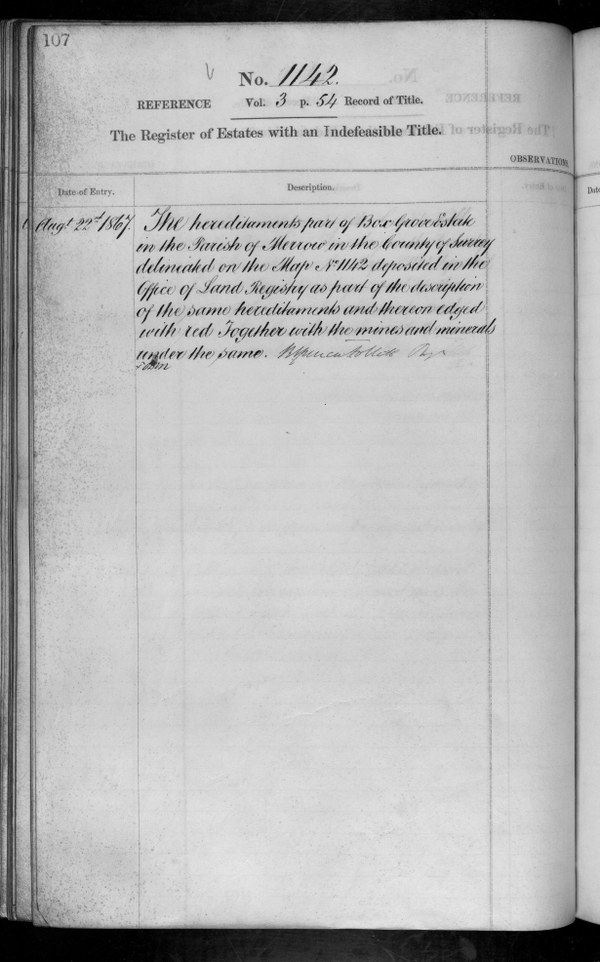 107
No. 1142.
REFERENCE Vol. 3 p. 54 Record of Title.
The Register of Estates with an Indefeasible Title.
OBSERVATIONS
Date of Entry. Description.
Augt 22d 1867. The hereditaments part of Box Grove Estate
in the Parish of Merrow in the County of Surrey
delineated on the Map No 1142 deposited in the
Office of Land Registry as part of the description
of the same hereditaments and thereon edged
with red Together with the mines and minerals
under the same.